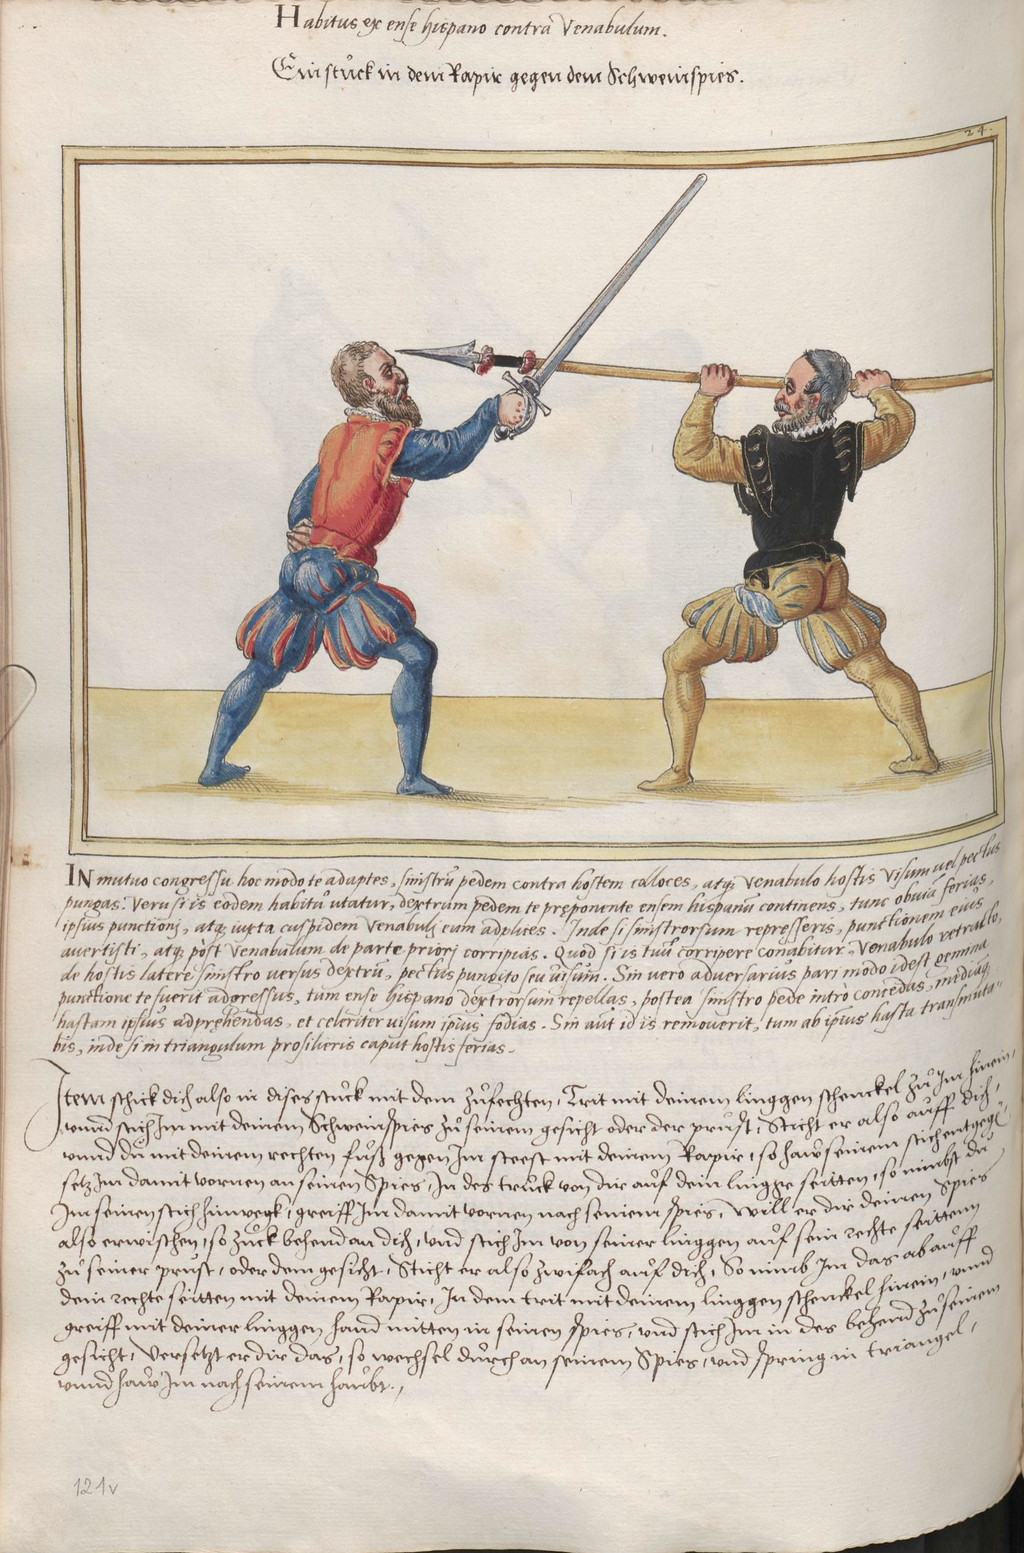 Habitus ex ense hispano contra Venabulum.
Ein stuck in dem Rapir gegen dem Schweinspies.
24.
IN mutuo congressu hoc modo te adaptes, sinistrũ pedem contra hostem colloces, atq; venabulo hostis visum vel pectus
pungas. Verũ si is eodem habitu utatur, dextrum pedem te preponente ensem hispanũ continens, tunc obuiã ferias,
ipsius punctionj, atq; iuxta cuspidem venabulj eam adplices. Inde si sinistrorsum represseris, punctionem eius
auertisti, atq; pòst venabulum de parte priorj corripias. Quod si is tuũ corripere conabitur, Venabulo retracto,
de hostis latere sinistro versus dextrũ, pectus pungito seu uisum. Sin vero aduersarius pari modo id est gemina
punctione te fuerit adgressus, tum ense hispano dextrorsum repellas, postea sinistro pede intrò concedas, mediãq;
hastam ipsius adprehendas, et celeriter uisum ipius fodias. Sin aũt id is remouerit, tum ab ipius hasta transmuta-
bis, inde si in triangulum prosilieris caput hostis ferias.
Item schick dich also in dises stuck mit dem zufechten, Trit mit deinem linggen schenckel zu Im hinein,
unnd stich Im mit deinem Schweinspies zu seinem gesicht oder der prust, Sticht er also auff dich,
unnd du mit deinem rechten fuß gegen Im steest mit deinem Rapir, so haw seinem stich entgegẽ
setz Im damit vornen an seinen Spies, In des truck von dir auf dein lingge seitten, so nimbst du
Im seinen stich hinwegk, greiff Im damit vornen nach seinem spies, Will er dir deinen Spies
also erwischen, so zuck behend an dich, und stich Im von seiner linggen auf sein rechte seitten
zu seiner prust, oder dem gesicht, Sticht er also zwifach auf dich, So nimb Im das ab auff
dein rechte seitten mit deinem Rapir, In dem trit mit deinem linggen schenckel hinein, unnd
greiff mit deiner linggen hand mitten in seinen spies, und stich Im in des behend zu seinem
gesicht, Versetzt er dir das, so wechsel durch an seinem Spies, und spring in triangel,
unnd haw Im nach seinem haubt.
121v